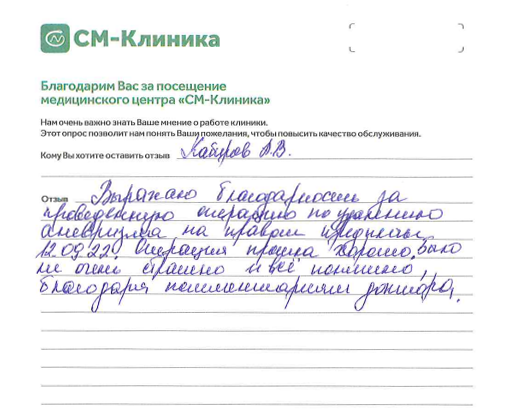 СМ-Клиника
Благодарим Вас за посещение
медицинского центра «СМ-Клиника»
Нам очень важно знать Ваше мнение о работе клиники.
Этот опрос позволит нам понять Ваши пожелания, чтобы повысить качество обслуживания.
Кому Вы хотите оставить отзыв Кабиров А.В.
Отзыв Выражаю благодарность за
проведенную операцию по удалению
аневризма на правом предплечье
12.09.22. Операция прошла хорошо. Было
не очень страшно и всё понятно,
благодаря комментариям доктора.